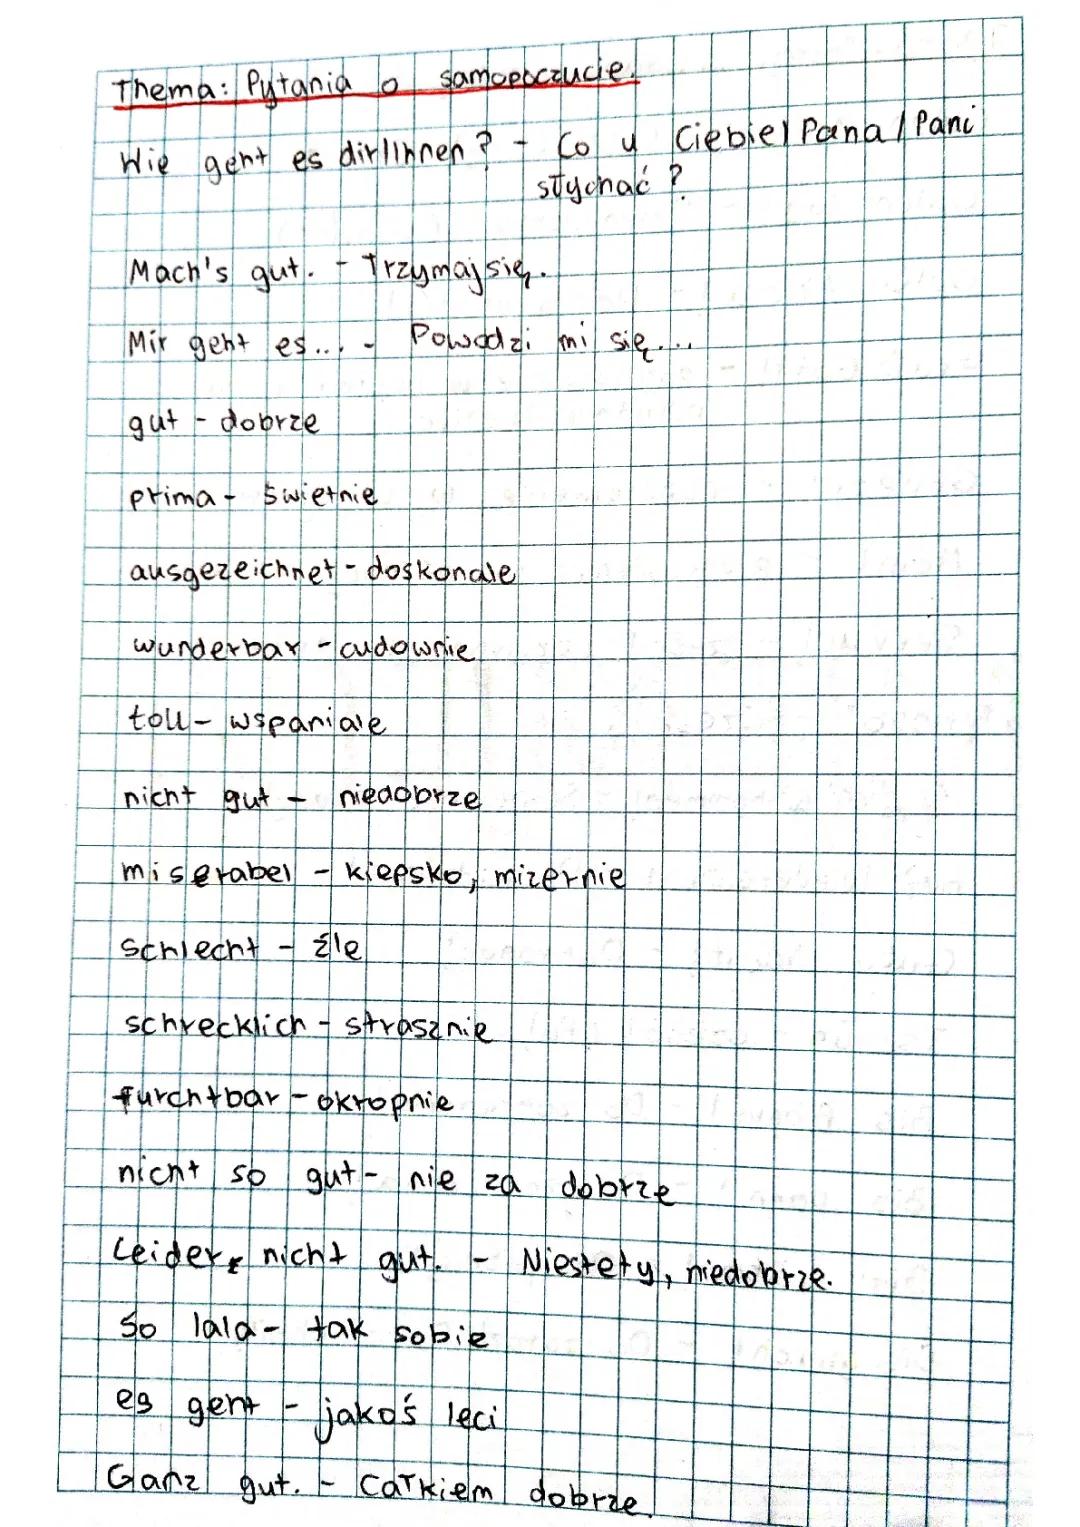 Thema: Pytania o samopoczucie.
Wie geht es dir/Ihnen? - Co u Ciebie/Pana/Pani
słychać?
Mach's gut. - Trzymaj się.
Mir geht es... - Powodzi mi się...
gut - dobrze
prima - świetnie
ausgezeichnet - doskonale
wunderbar - cudownie
toll - wspaniale
nicht gut - niedobrze
miserabel - kiepsko, mizernie
schlecht - źle
schrecklich - strasznie
furchtbar - okropnie
nicht so gut - nie za dobrze
Leider, nicht gut. - Niestety, niedobrze.
So lala - tak sobie
es geht - jakoś leci
Ganz gut. - Całkiem dobrze.